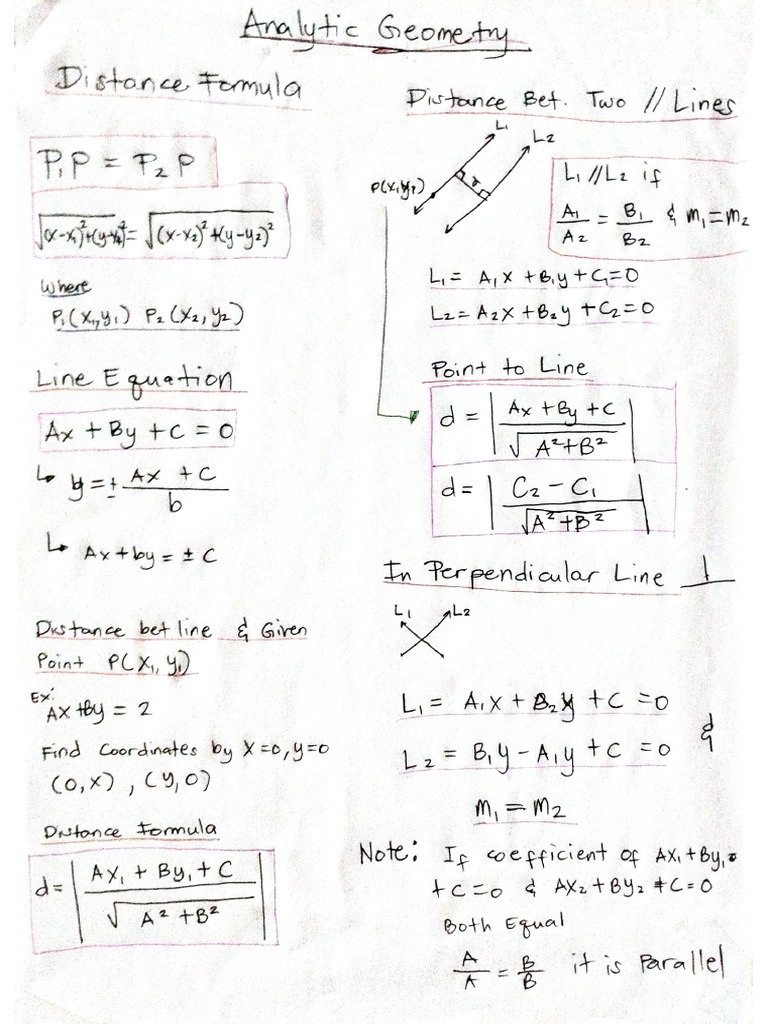 Analytic Geometry
Distance Formula
P₁P = P₂P
√(x-x₁)²+(y-y₁)² = √(x-x₂)²+(y-y₂)²
Where
P₁(x₁,y₁) P₂(x₂,y₂)
Line Equation
Ax + By + C = 0
↳ y = ± Ax + C / b
↳ Ax + by = ± C
Distance bet line & Given
Point P(x₁, y₁)
Ex:
Ax+By = 2
Find Coordinates by x=0, y=0
(0,x), (y,0)
Distance Formula
d = | Ax₁ + By₁ + C / √A² + B² |
Distance Bet. Two // Lines
L₁ L₂
P(x₁,y₂) d
L₁ // L₂ if
A₁/A₂ = B₁/B₂ & m₁ = m₂
L₁ = A₁x + B₁y + C₁ = 0
L₂ = A₂x + B₂y + C₂ = 0
Point to Line
d = | Ax + By + C / √A² + B² |
d = | C₂ - C₁ / √A² + B² |
In Perpendicular Line ⊥
L₁ L₂
L₁ = A₁x + B₂y + C = 0
&
L₂ = B₁y - A₁y + C = 0
m₁ = m₂
Note: If coefficient of Ax₁ + By₁
+ C = 0 & Ax₂ + By₂ + C = 0
Both Equal
A/A = B/B it is Parallel